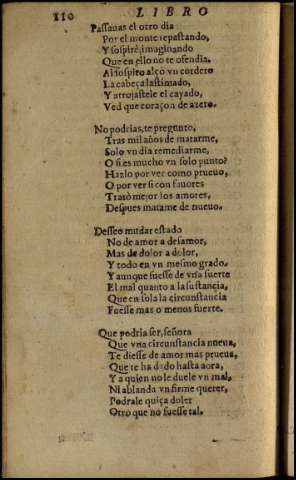 110 LIBRO
Passauas el otro dia
Por el monte repastando,
Y sospirè, imaginando
Que en ello no te ofendia.
Al sospiro alçò vn cordero
La cabeça lastimado,
Y arrojastele el cayado,
Ved que coraçon de azero.
No podrias, te pregunto,
Tras mil años de matarme,
Solo vn dia remediarme,
O si es mucho vn solo punto?
Hazlo por ver como prueuo,
O por ver si con fauores
Trato mejor los amores,
Despues matame de nueuo.
Desseo mudar estado
No de amor a desamor,
Mas de dolor a dolor,
Y todo en vn mesmo grado.
Y aunque fuesse de vna suerte
El mal quanto a la sustancia,
Que en sola la circunstancia
Fuesse mas o menos fuerte.
Que podria ser, señora
Que vna circunstancia nueua,
Te diesse de amor mas prueua,
Que te ha dado hasta aora,
Y a quien no le duele vn mal,
Ni ablanda vn firme querer,
Podrale quiça doler
Otro que no fuesse tal.